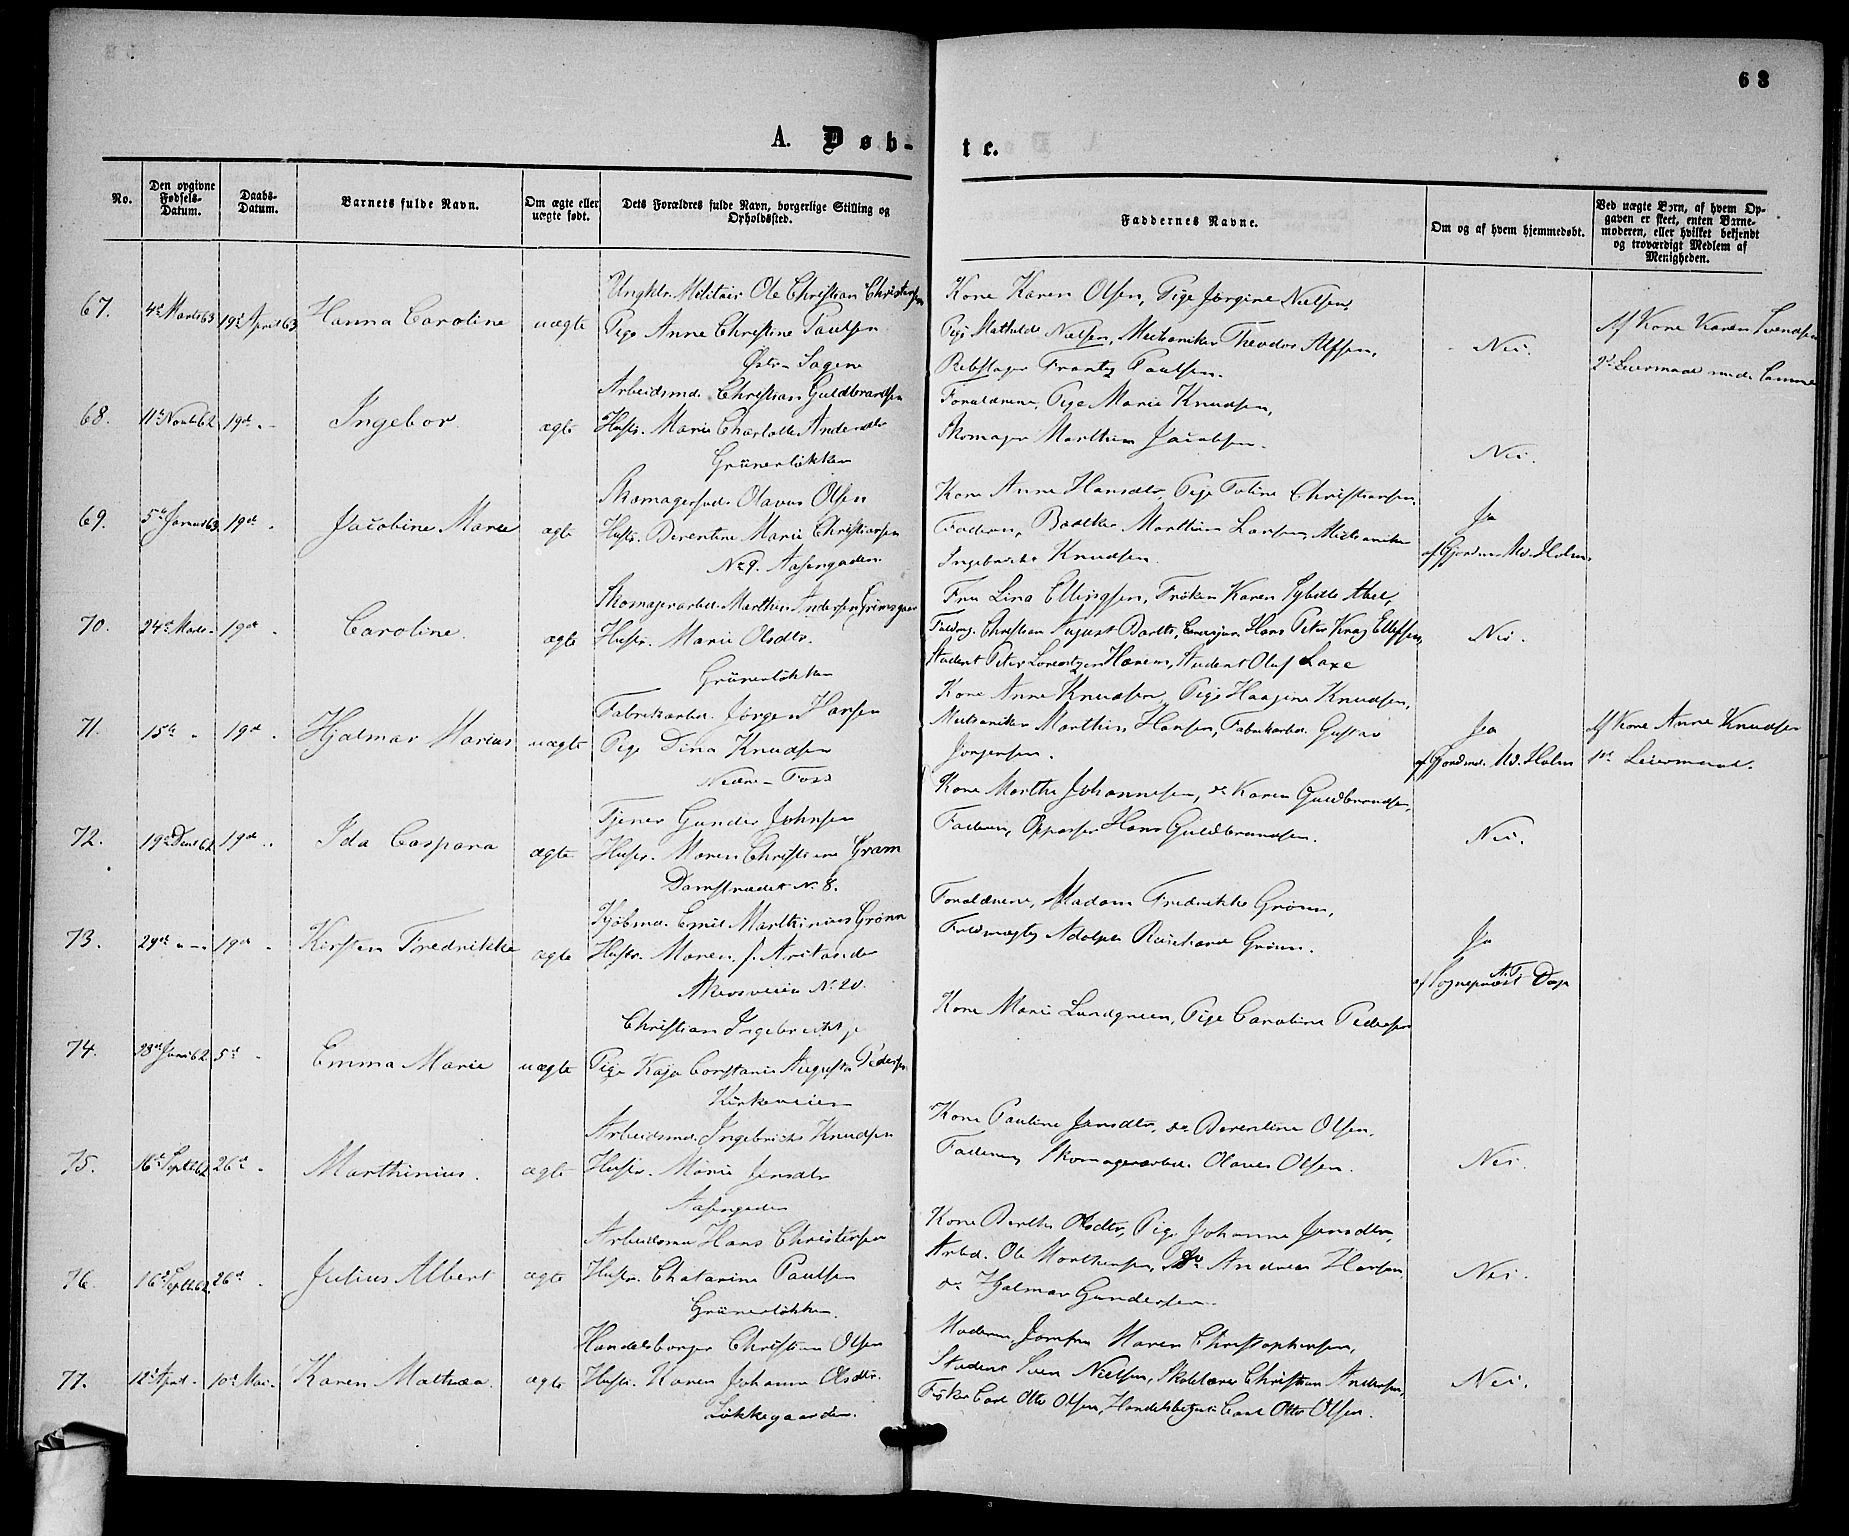 63
A. Døb-
te.
No.
Den opgivne Fødsels-Datum.
Daabs-Datum.
Barnets fulde Navn.
Om ægte eller uægte født.
Dets Forældres fulde Navn, borgerlige Stilling og Opholdssted.
Faddernes Navne.
Om og af hvem hjemmedøbt.
Ved uægte Børn, af hvem Opgaven er skeet, enten Barnemoderen, eller hvilket bekjendt og troværdigt Medlem af Menigheden.
67. 4de Marts 63 19de April 63 Hanna Caroline uægte
Ungkl. Militair Ole Christian Christensen
Pige Anne Christine Paulsen
Østre Sagene
Kone Karen Olsen, Pige Jørgine Nielsen,
Pige Mathilde Nielsen, Mekaniker Theodor Alfsen,
Rebslager Frantz Paulsen.
Nei.
Af Kone Karen Svendsen
2d Leiermaal med Samme
68. 11te Novbr 62 19de " Ingebor ægte
Arbeidsmd. Christian Guldbrandsen
Hustr. Marie Charlotte Andersdtr
Grünerløkken
Forældrene, Pige Marie Knudsen,
Skomager Marthin Jacobsen.
Nei.
69. 5te Januar 63. 19de " Jacobine Marie ægte
Skomagersvd. Olavus Olsen
Hustr. Berentine Marie Christiansen
No 9. Aasengaden.
Kone Anne Hansdtr, Pige Christiansen,
Faderen, Marthin Larsen, Mekaniker
Ingebricht Knudsen.
Ja
af Gjordm. Md. Holm
70. 24de Marts " 19de " Caroline. ægte
Skomagerarbd. Marthin Andersen Grimsgaar
Hustr. Marie Olsdtr.
Grünerløkken
Fru Lina Ellingsen, Frøken Karen Sybille Abel,
Fuldmg. Christian August Barth, Hans Peter Krag Ellefsen,
Student Peter Lorentzen Harem, Student Oluf Laxe
Nei.
71. 15de " 19de " Hjalmar Marius uægte
Fabrikarbd. Jørgen Hansen
Pige Dina Knudsen
Nedre-Foss
Kone Anne Knudsen, Pige Haagine Knudsen,
Mekaniker Marthin Hansen, Fabrikarbd. Gustav
Jørgensen.
Ja
af Gjordmd. Md. Holm
Af Kone Anne Knudsen
1ste Leiermaal.
72. 19de Decbr 62 19de " Ida Caspara ægte
Tjener Gunder Johnsen
Hustr. Maren Christiane Gram
Damstrædet No 8.
Kone Marthe Johannesen, do Karen Guldbrandsen,
Faderen, Oppasser Hans Guldbrandsen.
Nei.
73. 29de " " 19de " Kirsten Fredrikke ægte
Kjøbmd. Emil Marthinius Grønn
Hustr. Maren f.
Akersveien No 20.
Forældrene, Madam Fredrikke Grønn,
Fuldmægtig Adolph Grønn.
Ja
af Sognepræst
74. 28de Juni 62. 5te " Emma Marie uægte
Christian
Pige Kaja Constance Augusta Pedersen
Kirkeveien
Kone Marie Lundgreen, Pige Caroline Pedersen
75. 16de Septbr 62 26de " Marthinius. ægte
Arbeidsmd. Ingebricht Knudsen
Hustr. Marie Jensdtr
Aasengaden
Kone Pauline Jensdtr, do Berentine Olsen,
Faderen, Skomagerarbd. Olaves Olsen.
Nei.
76. 16de Septbr 62. 26de " Julius Albert ægte
Arbeidsmd Hans Christensen
Hustr. Chatarine Paulsen
Grünerløkken
Kone Berthe Olsdtr, Pige Johanne Jensdtr,
Arbd. Ole Marthinsen, do Andreas Hansen,
do Hjalmar Gundersen.
Nei.
77. 12te April " 10de Mai " Karen Mathea. ægte
Handelsborger Christian Olsen
Hustr. Karen Johanne Olsdtr.
Løkkegaarden.
Moderen, Jomfru Maren Christophersen,
Student Sven Nielsen, Skolelærer Christian Andersen,
Carl Otto Olsen, Carl Otto Olsen.
Nei.